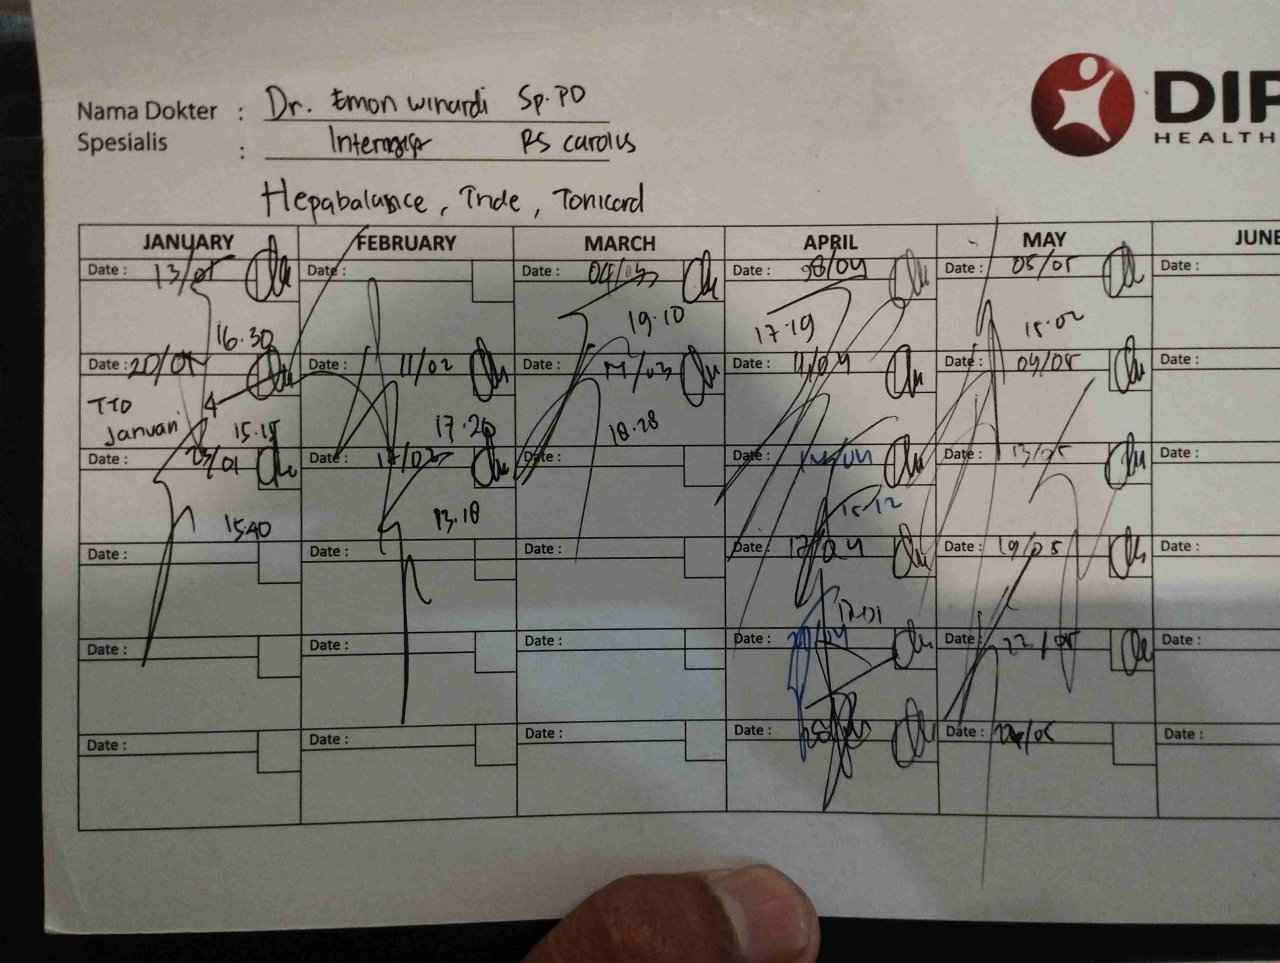 Nama Dokter : Dr. Emon Winardi Sp.PD
Spesialis : Internist RS Carolus
DIP
HEALTH
Hepabalance, Tride, Tonicard
JANUARY FEBRUARY MARCH APRIL MAY JUNE
Date : 13/01 Date : Date : 04/03 Date : 08/04 Date : 05/05 Date :
16.30 19.10 17.19 15.02
Date : 20/01 Date : 11/02 Date : 17/03 Date : 11/04 Date : 09/05 Date :
TTD
Januari 15.15 17.20 18.28
Date : 23/01 Date : 17/02 Date : Date : 14/04 Date : 13/05 Date :
15.40 13.18 15.12
Date : Date : Date : Date : 17/04 Date : 19/05 Date :
17.01
Date : Date : Date : Date : 21/04 Date : 22/05 Date :
Date : Date : Date : Date : Date : 26/05 Date :